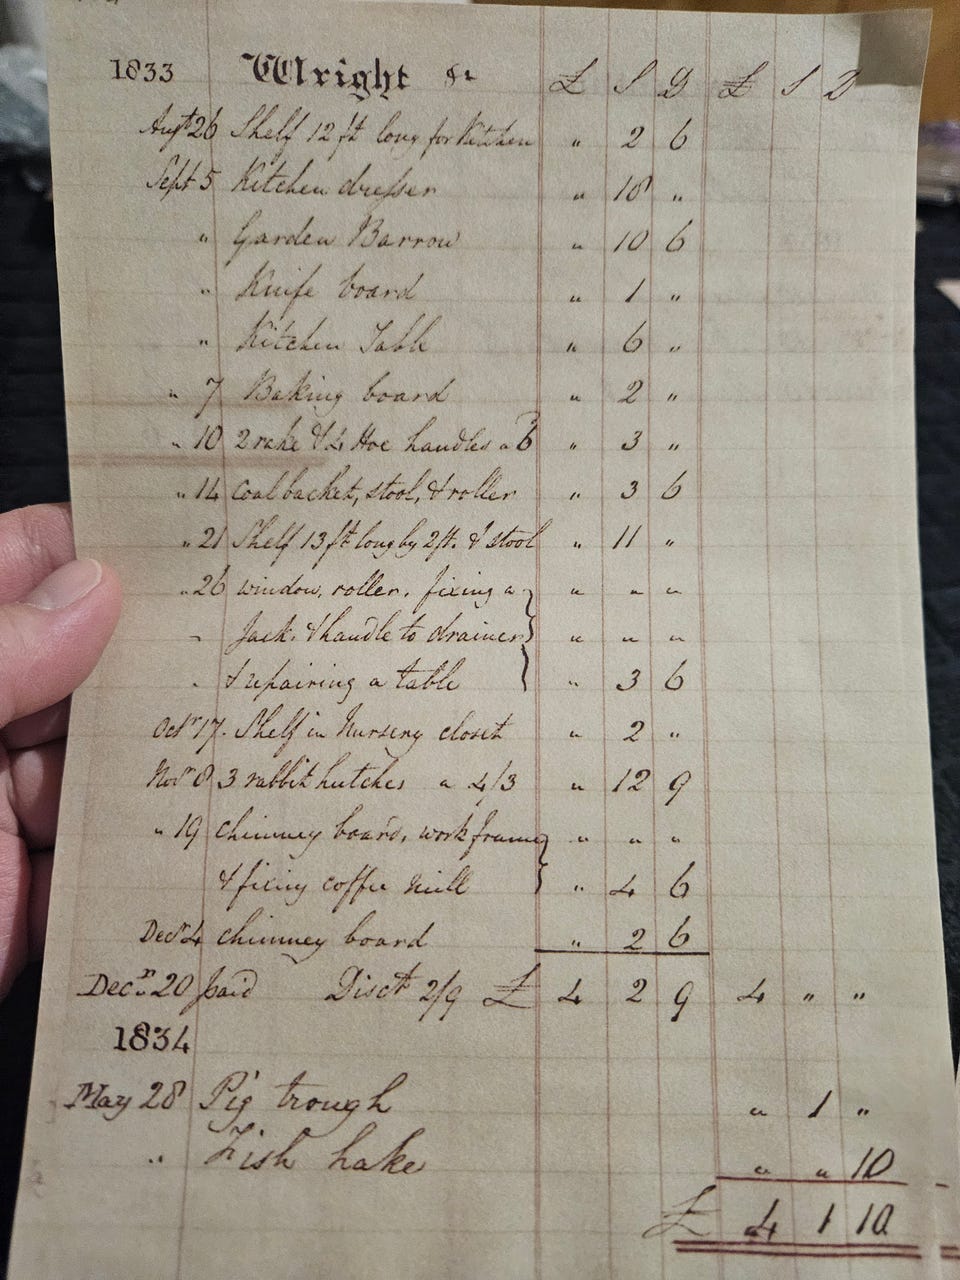 1833 Wright &c £ S D £ S D
Augt 26 Shelf 12 ft long for Kitchen " 2 6
Sept 5 Kitchen dresser " 18 "
" Garden Barrow " 10 6
" Knife board " 1 "
" Kitchen Table " 6 "
" 7 Baking board " 2 "
" 10 2 rake & 4 Hoe handles a 6 " 3 "
" 14 Coal backet, stool, & roller " 3 6
" 21 Shelf 13 ft long by 2 ft. & stool " 11 "
" 26 window, roller, fixing a " " "
" Jack, & handle to drainer " " "
" & repairing a table " 3 6
Octr 17. Shelf in Nursery closet " 2 "
Novr 8 3 rabbit hutches a 4/3 " 12 9
" 19 chimney board, work frame " " "
& fixing coffee mill " 4 6
Decr 4 chimney board " 2 6
Decr 20 paid Disct 2/9 £ 4 2 9 4 " "
1834
May 28 Pig trough " 1 "
" Fish hake " " 10
£ 4 1 10